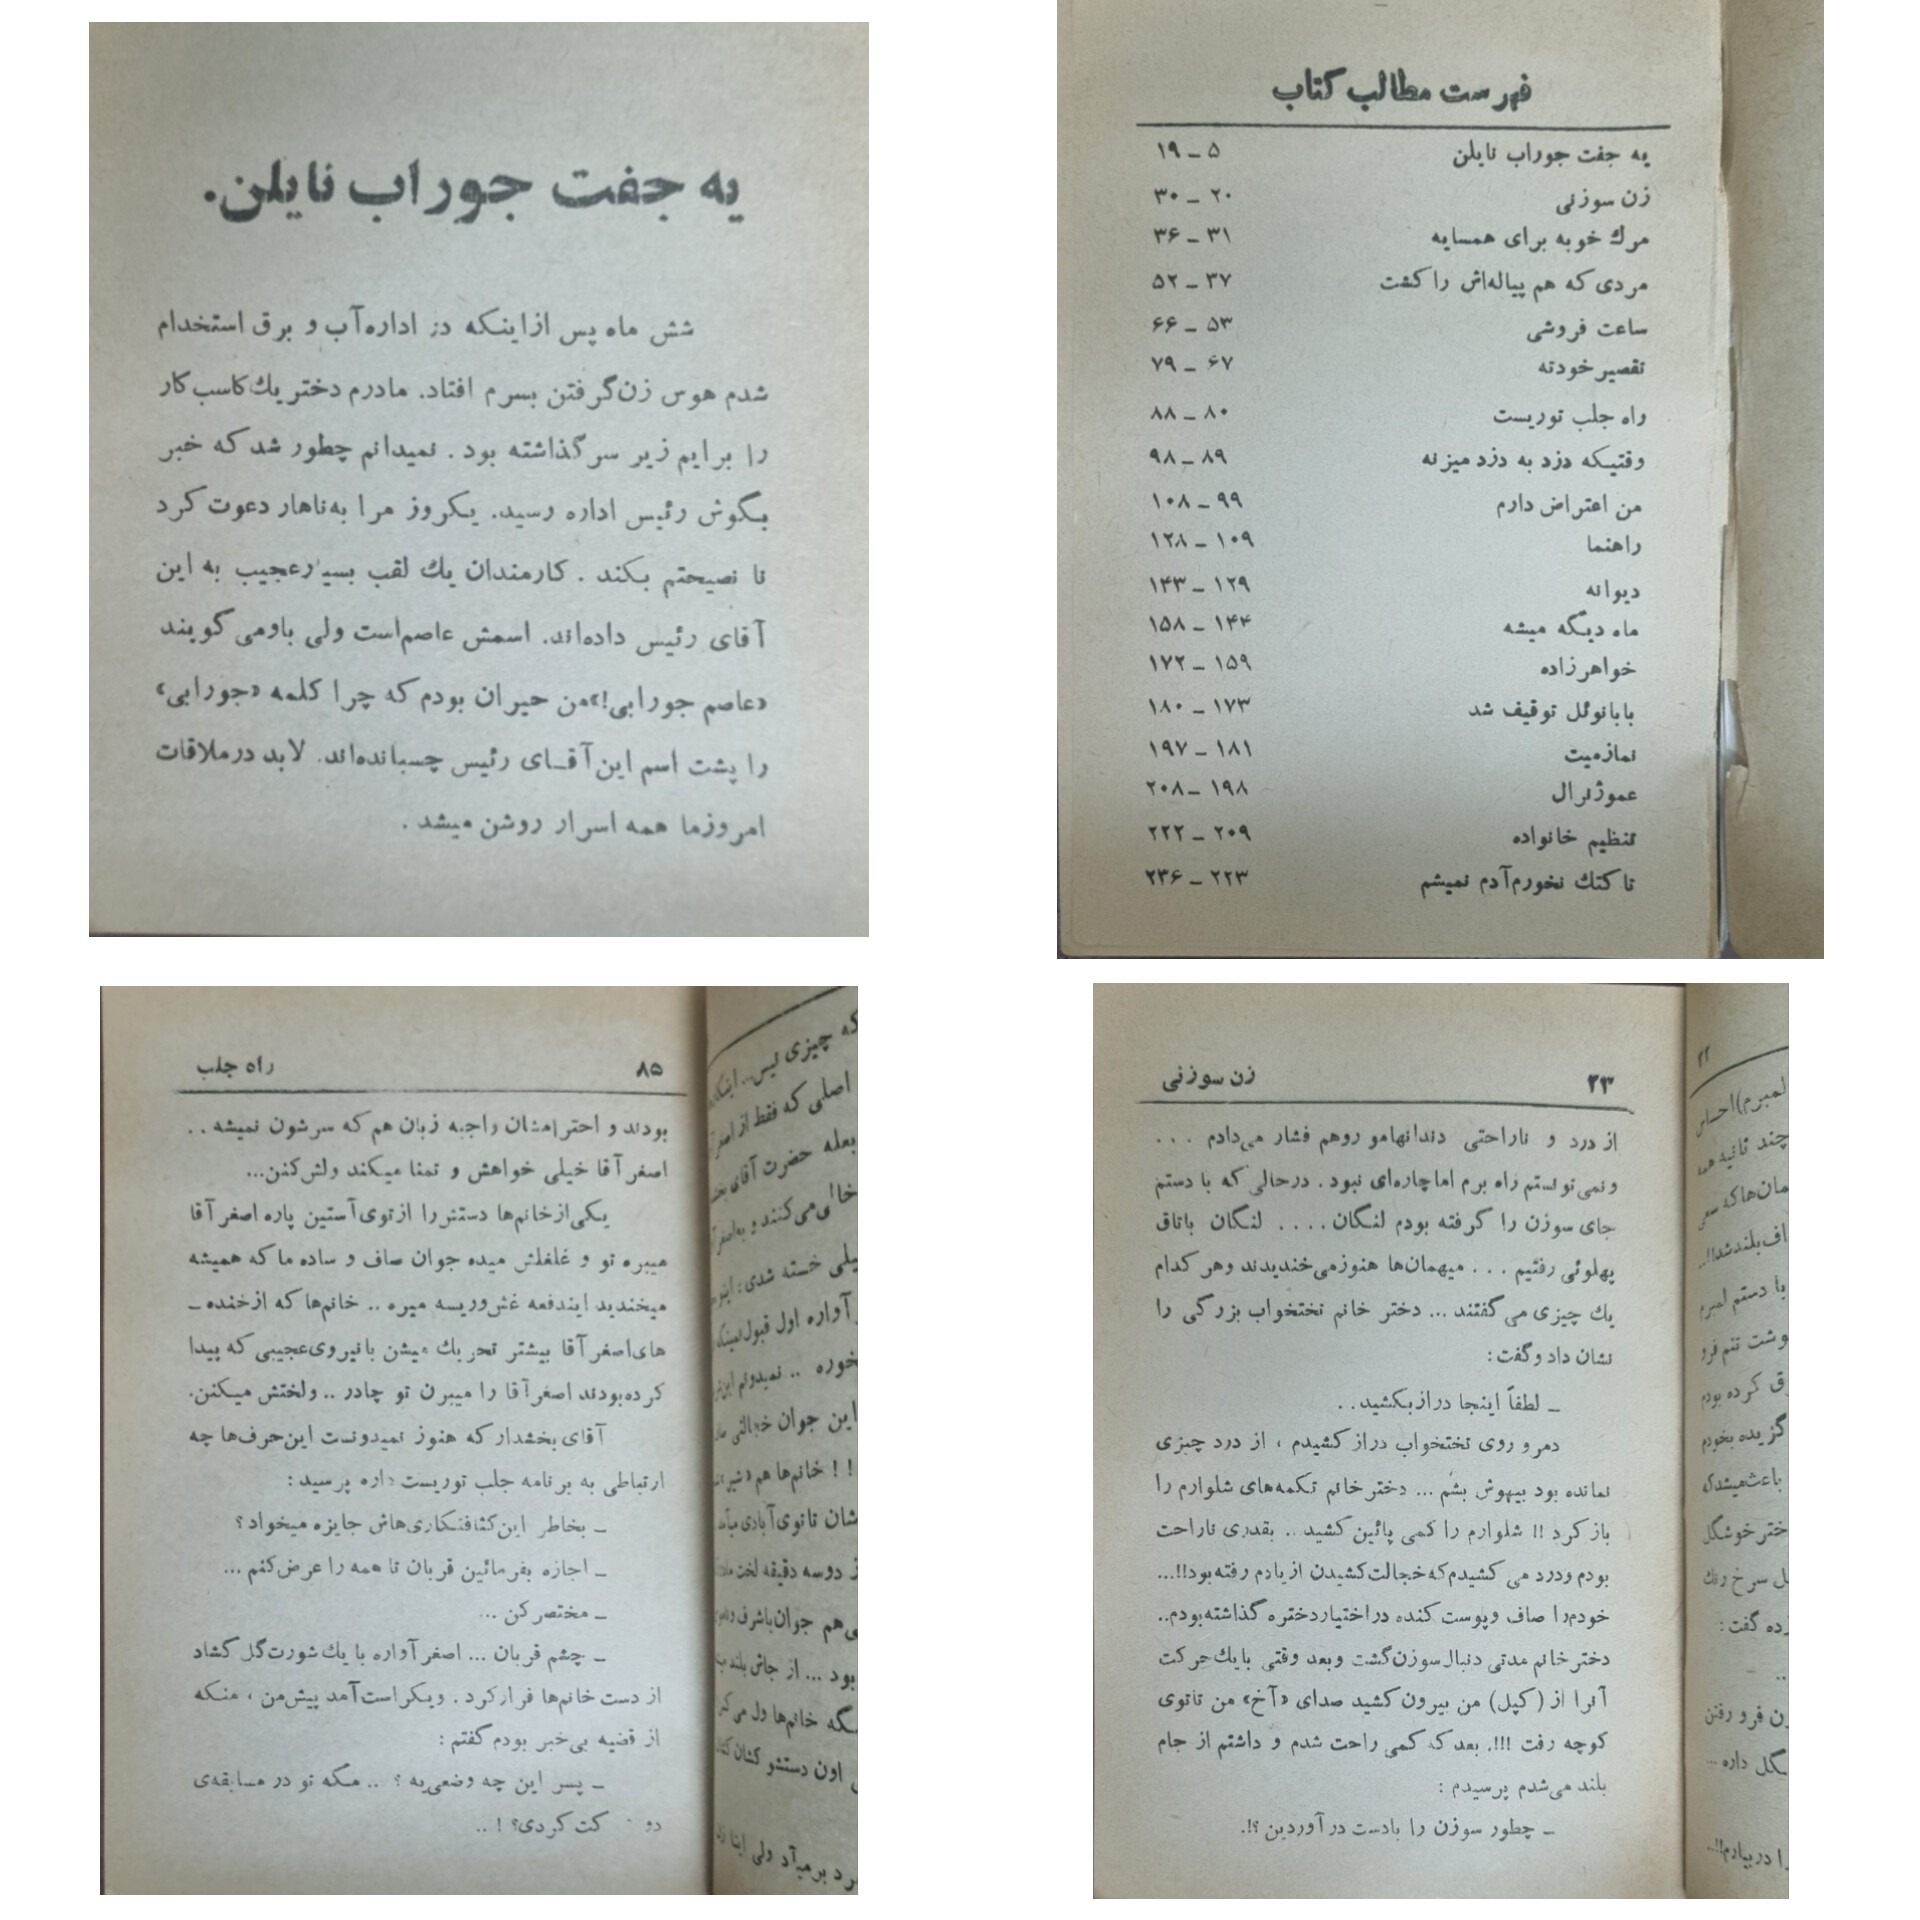 یه جفت جوراب نایلن.
شش ماه پس از اینکه در اداره آب و برق استخدام
شدم هوس زن گرفتن بسرم افتاد. مادرم دختر یك کاسب کار
را برایم زیر سر گذاشته بود . نمیدانم چطور شد که خبر
بگوش رئیس اداره رسید. یکروز مرا به ناهار دعوت کرد
تا نصیحتم بکند . کارمندان یك لقب بسیار عجیب به این
آقای رئیس داده‌اند. اسمش عاصم است ولی باو می گویند
«عاصم جورابی!» من حیران بودم که چرا کلمه «جورابی»
را پشت اسم این آقـای رئیس چسبانده‌اند. لابد در ملاقات
امروز ما همه اسرار روشن میشد .
فهرست مطالب کتاب
یه جفت جوراب نایلن ۵ – ۱۹
زن سوزنی ۲۰ – ۳۰
مرك خوبه برای همسایه ۳۱ – ۳۶
مردی که هم پیاله‌اش را کشت ۳۷ – ۵۲
ساعت فروشی ۵۳ – ۶۶
تقصیر خودته ۶۷ – ۷۹
راه جلب توریست ۸۰ – ۸۸
وقتیکه دزد به دزد میزنه ۸۹ – ۹۸
من اعتراض دارم ۹۹ – ۱۰۸
راهنما ۱۰۹ – ۱۲۸
دیوانه ۱۲۹ – ۱۴۳
ماه دیگه میشه ۱۴۴ – ۱۵۸
خواهرزاده ۱۵۹ – ۱۷۲
بابانوئل توقیف شد ۱۷۳ – ۱۸۰
نماز میت ۱۸۱ – ۱۹۷
عموژنرال ۱۹۸ – ۲۰۸
تنظیم خانواده ۲۰۹ – ۲۲۲
تا کتك نخورم آدم نمیشم ۲۲۳ – ۲۳۶
۸۵ راه جلب
بودند و احترامشان واجبه زبان هم که سرشون نمیشه . .
اصغر آقا خیلی خواهش و تمنا میکند ولش کنن...
یکی از خانم‌ها دستش را از توی آستین پاره اصغر آقا
میبره تو و غلغلش میده جوان صاف و ساده ما که همیشه
میخندید ایندفعه غش و ریسه میره .. خانم‌ها که از خنده –
های اصغر آقا بیشتر تحریك میشن با نیروی عجیبی که پیدا
کرده بودند اصغر آقا را میبرن تو چادر .. ولختش میکنن.
آقای بخشدار که هنوز نمیدونست این حرف‌ها چه
ارتباطی به برنامه جلب توریست داره پرسید :
– بخاطر این کثافتکاری‌هاش جایزه میخواد ؟
– اجازه بفرمائین قربان تا همه را عرض کنم ...
– مختصر کن ...
– چشم قربان ... اصغر آواره با یك شورت گل گشاد
از دست خانم‌ها فرار کرد . ویکراست آمد پیش من ، منکه
از قضیه بی‌خبر بودم گفتم :
– پسر این چه وضعی‌یه ؟ .. مگه تو در مسابقه‌ی
دو کت کردی؟ ! ..
که چیزی لیس...
اصلی که فقط از
بعله حضرت آقای
می‌کنند و
یلی خسته شدی :
آواره اول قبول
خوره .. نمیدونم
این جوان خجالتی
! ! خانم‌ها هم
شان تا توی آبادی
دوسه دقیقه لخت
ی هم جوان باشرف
بود ... از جاش بلند
گه خانم‌ها ول می
اون دستشو کشان
بر میآد ولی
۲۳ زن سوزنی
از درد و ناراحتی دندانهامو روهم فشار می‌دادم . . .
ونمی تونستم راه برم اما چاره‌ای نبود . در حالی که با دستم
جای سوزن را گرفته بودم لنگان . . . . لنگان باتاق
پهلوئی رفتیم . . . میهمان‌ها هنوز می‌خندیدند وهر کدام
یك چیزی می گفتند ... دختر خانم تختخواب بزرگی را
نشان داد و گفت :
– لطفاً اینجا دراز بکشید . .
دمرو روی تختخواب دراز کشیدم ، از درد چیزی
نمانده بود بیهوش بشم ... دختر خانم تکمه‌های شلوارم را
باز کرد !! شلوارم را کمی پائین کشید .. بقدری ناراحت
بودم ودرد می کشیدم که خجالت کشیدن از یادم رفته بود!!...
خودم را صاف وپوست کنده در اختیار دختره گذاشته بودم..
دختر خانم مدتی دنبال سوزن گشت وبعد وقتی با یك حرکت
آنرا از (کپل) من بیرون کشید صدای «آخ» من تا توی
کوچه رفت !!!. بعد که کمی راحت شدم و داشتم از جام
بلند می‌شدم پرسیدم :
– چطور سوزن را بادست در آوردین ؟!.
۲۲
لمبرم) احساس
چند ثانیه همه
مان‌ها که سعی
اف بلند شد!!..
با دستم لمبرم
وشت تنم فرو
ق کرده بودم
گزیده بخودم
باعث میشد که
ختر خوشگل
ل سرخ رنك
ده گفت :
ن فرو رفتن
گل داره ...
ا در بیارم!!..